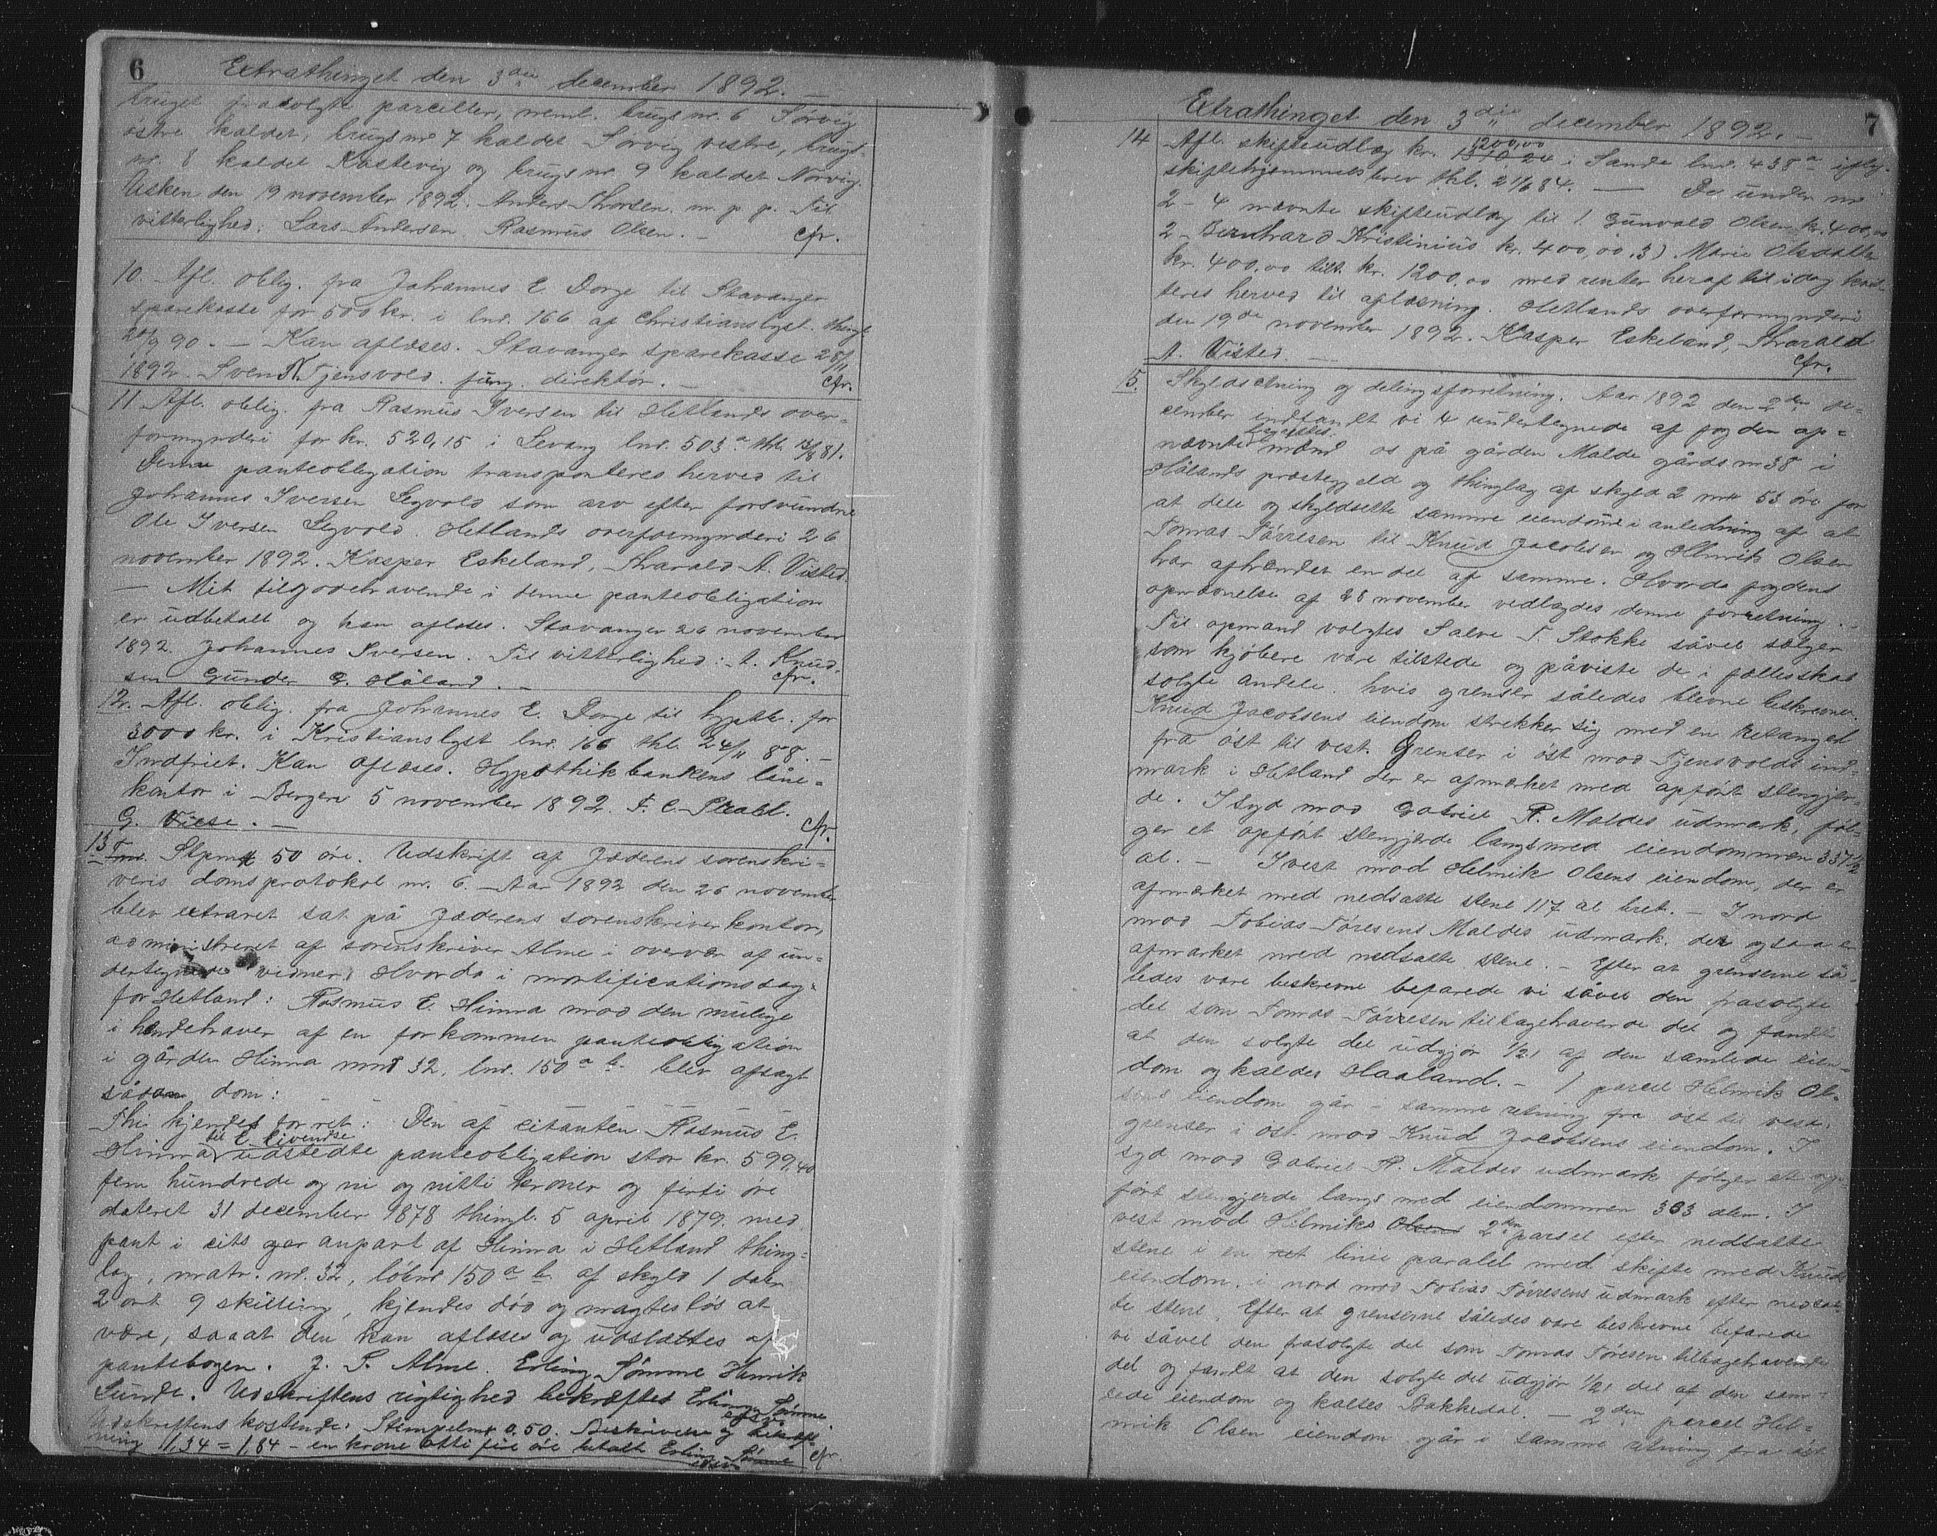 6 Extrathinget den 3die december 1892. —
bruget frasolgte parceller, neml. brugs nr. 6 Sørvig
østre kaldet, brugs nr 7 kaldet Sørvig vestre, brugs-
nr. 8 kaldet Rastevig og brugs nr. 9 kaldet Norvig.
Usken den 19 november 1892. Anders Thorsen m. p. p. Til
vitterlighed: Lars Andersen Rasmus Olsen. — cfr.
10. Afl. oblig. fra Johannes E. Dorge til Stavanger
sparekasse for 500 kr. i lnr. 166 af Christianslyst. thingl.
20/9 90. — Kan aflæses. Stavanger sparekasse 28/11
1892. Svend Tjensvold fung. direktør. — cfr.
11 Afl. oblig. fra Rasmus Iversen til Hetlands over-
formynderi for kr. 520,15 i Sevang lnr. 503a thl. 81.
Denne panteobligation transporteres herved til
Johannes Iversen Segvold som arv efter forsvundne
Ole Iversen Segvold. Hetlands overformynderi 26
november 1892. Kasper Eskeland, Tharald A. Visted.
— Mit tilgodehavende i denne panteobligation
er udbetalt og kan aflæses. Stavanger 26 november
1892. Johannes Iversen. Til vitterlighed: A. Knud-
sen Gunder G. Håland. — cfr.
12. Afl. oblig. fra Johannes E. Dorge til hyptb. for
3000 kr. i Kristianslyst lnr. 166 thl. 24/11 88. —
Indfriet. Kan aflæses. Hypothekbankens låne-
kontor i Bergen 5 november 1892 F. C. Prahl.
G. Wiese. — cfr.
13 Stpm 50 øre. Udskrift af Jæderens sorenskri-
veris domsprotokol nr. 6. Aar 1892 den 26 november
blev extraret sat på Jæderens sorenskriverkontor,
administreret af sorenskriver Alme i overvær af un-
dertegnede vidner. Hvorda i mortificationssag
for Hetland: Rasmus E. Hinna mod den mulige
ihændehaver af en forkommen panteobligation
i gården Hinna mnr 32, lnr. 150a b. blev afsagt
sådan dom:
Thi kjendes for ret: Den af citanten Rasmus E.
Hinna til E. Eivendse udstedte panteobligation stor kr. 599,40
fem hundrede og ni og nitti kroner og firti øre
dateret 31 december 1878 thingl. 5 april 1879. med
pant i cits garanpart af Hinna i Hetland thing-
lag, matr. nr. 32, løbnr 150a b. af skyld 1 daler
2 ort 9 skilling, kjendes død og magtesløs at
være, saaat den kan aflæses og udslættes af
pantebogen. J. S. Alme. Erling Sømme Henrik
Sunde. Udskriftens rigtighed bekræftes Erling Sømme
Udskriftens kostende: Stempelm 0.50. Beskrivelse og bekræft-
ning 1,34 = 1,84 — en krone otti fire øre betalt Erling Sømme cfr.
Extrathinget den 3die december 1892. — 7
14 Afl. skifteudlæg kr. 1200,00 1310 24 i Sande lnr. 438a ifølge
skiftehjemmelsbrev thl. 21/6 84. — De under nr
2 – 4 nævnte skifteudlæg til 1 Gunvald Olsen kr. 400,00
2 – Bernhard Kristinius kr. 400,00. 3) Marie Olsdatter
kr. 400.00 tilt. kr. 1200,00 med renter heraf til idag kvit-
teres herved til aflæsning. Hetlands overformynderi
den 19de november 1892. Kasper Eskeland, Tharald
A. Visted. — cfr.
15. Skyldsetning og delingsforretning. Aar 1892 den 2den de-
cember indfandt vi 4 undertegnede af fogden op-
nævnte mænd os på gården Malde gårds nr 38 i
Hålands præstegjeld og thinglag af skyld 2 mrk 53 øre for
at dele og skyldsette samme eiendom i anledning af at
Tomas Tørresen til Knud Jacobsen og Helmik Olsen
har afhændet en del af samme. Hvorda fogdens
opnævnelse af 28 november vedlagdes denne forretning. —
Til opmand valgtes Salve T. Stokke såvel sælger
som kjøbere vare tilstede og påviste de i fællesskab
solgte andele. hvis grenser således bleve beskrevne.
Knud Jacobsens eiendom strekker sig med en retangel
fra øst til vest. Grenser i øst mod Tjensvolds ind-
mark i Hetland der er afmærket med opført stengjer-
de. I syd mod Gabriel P. Maldes udmark, føl-
ger et opført stengjerde langs med eiendommen 337 1/2
al. — I vest mod Helmik Olsens eiendom, der er
afmærket med nedsatte stene 117 al bret. — I nord
mod Tobias Tøresens Maldes udmark. der ogsaa er
afmærket med nedsatte stene. — Efter at grenserne så-
ledes vare beskrevne befarede vi såvel den frasolgte
del som Tomas Tørresen tilbagehavende del og fandt
at den solgte del udgjør 1/21 af den samlede eien-
dom og kaldes Haaland. — 1 parcel Helmik Ol-
sens eiendom går i samme retning fra øst til vest.
grenser i øst mod Knud Jacobsens eiendom. I
syd mod Gabriel P. Maldes udmark følger et op-
ført stengjerde langs med eiendommen 303 alen. I
vest mod Helmiks Olsens 2den parsel efter nedsatte
stene i en ret linie paralel med skifte med Knuds
eiendom. i nord mod Tobias Tørresens udmark efter nedsat-
te stene. Efter at grenserne således vare beskrevne befarede
vi såvel den frasolgte del som Tomas Tøresen tilbagehavende
del og fandt at den solgte del udgjør 1/21 del af den sam-
lede eiendom og kaldes Bakkedal. — 2den parcel Hel-
mik Olsen eiendom går i samme retning fra øst